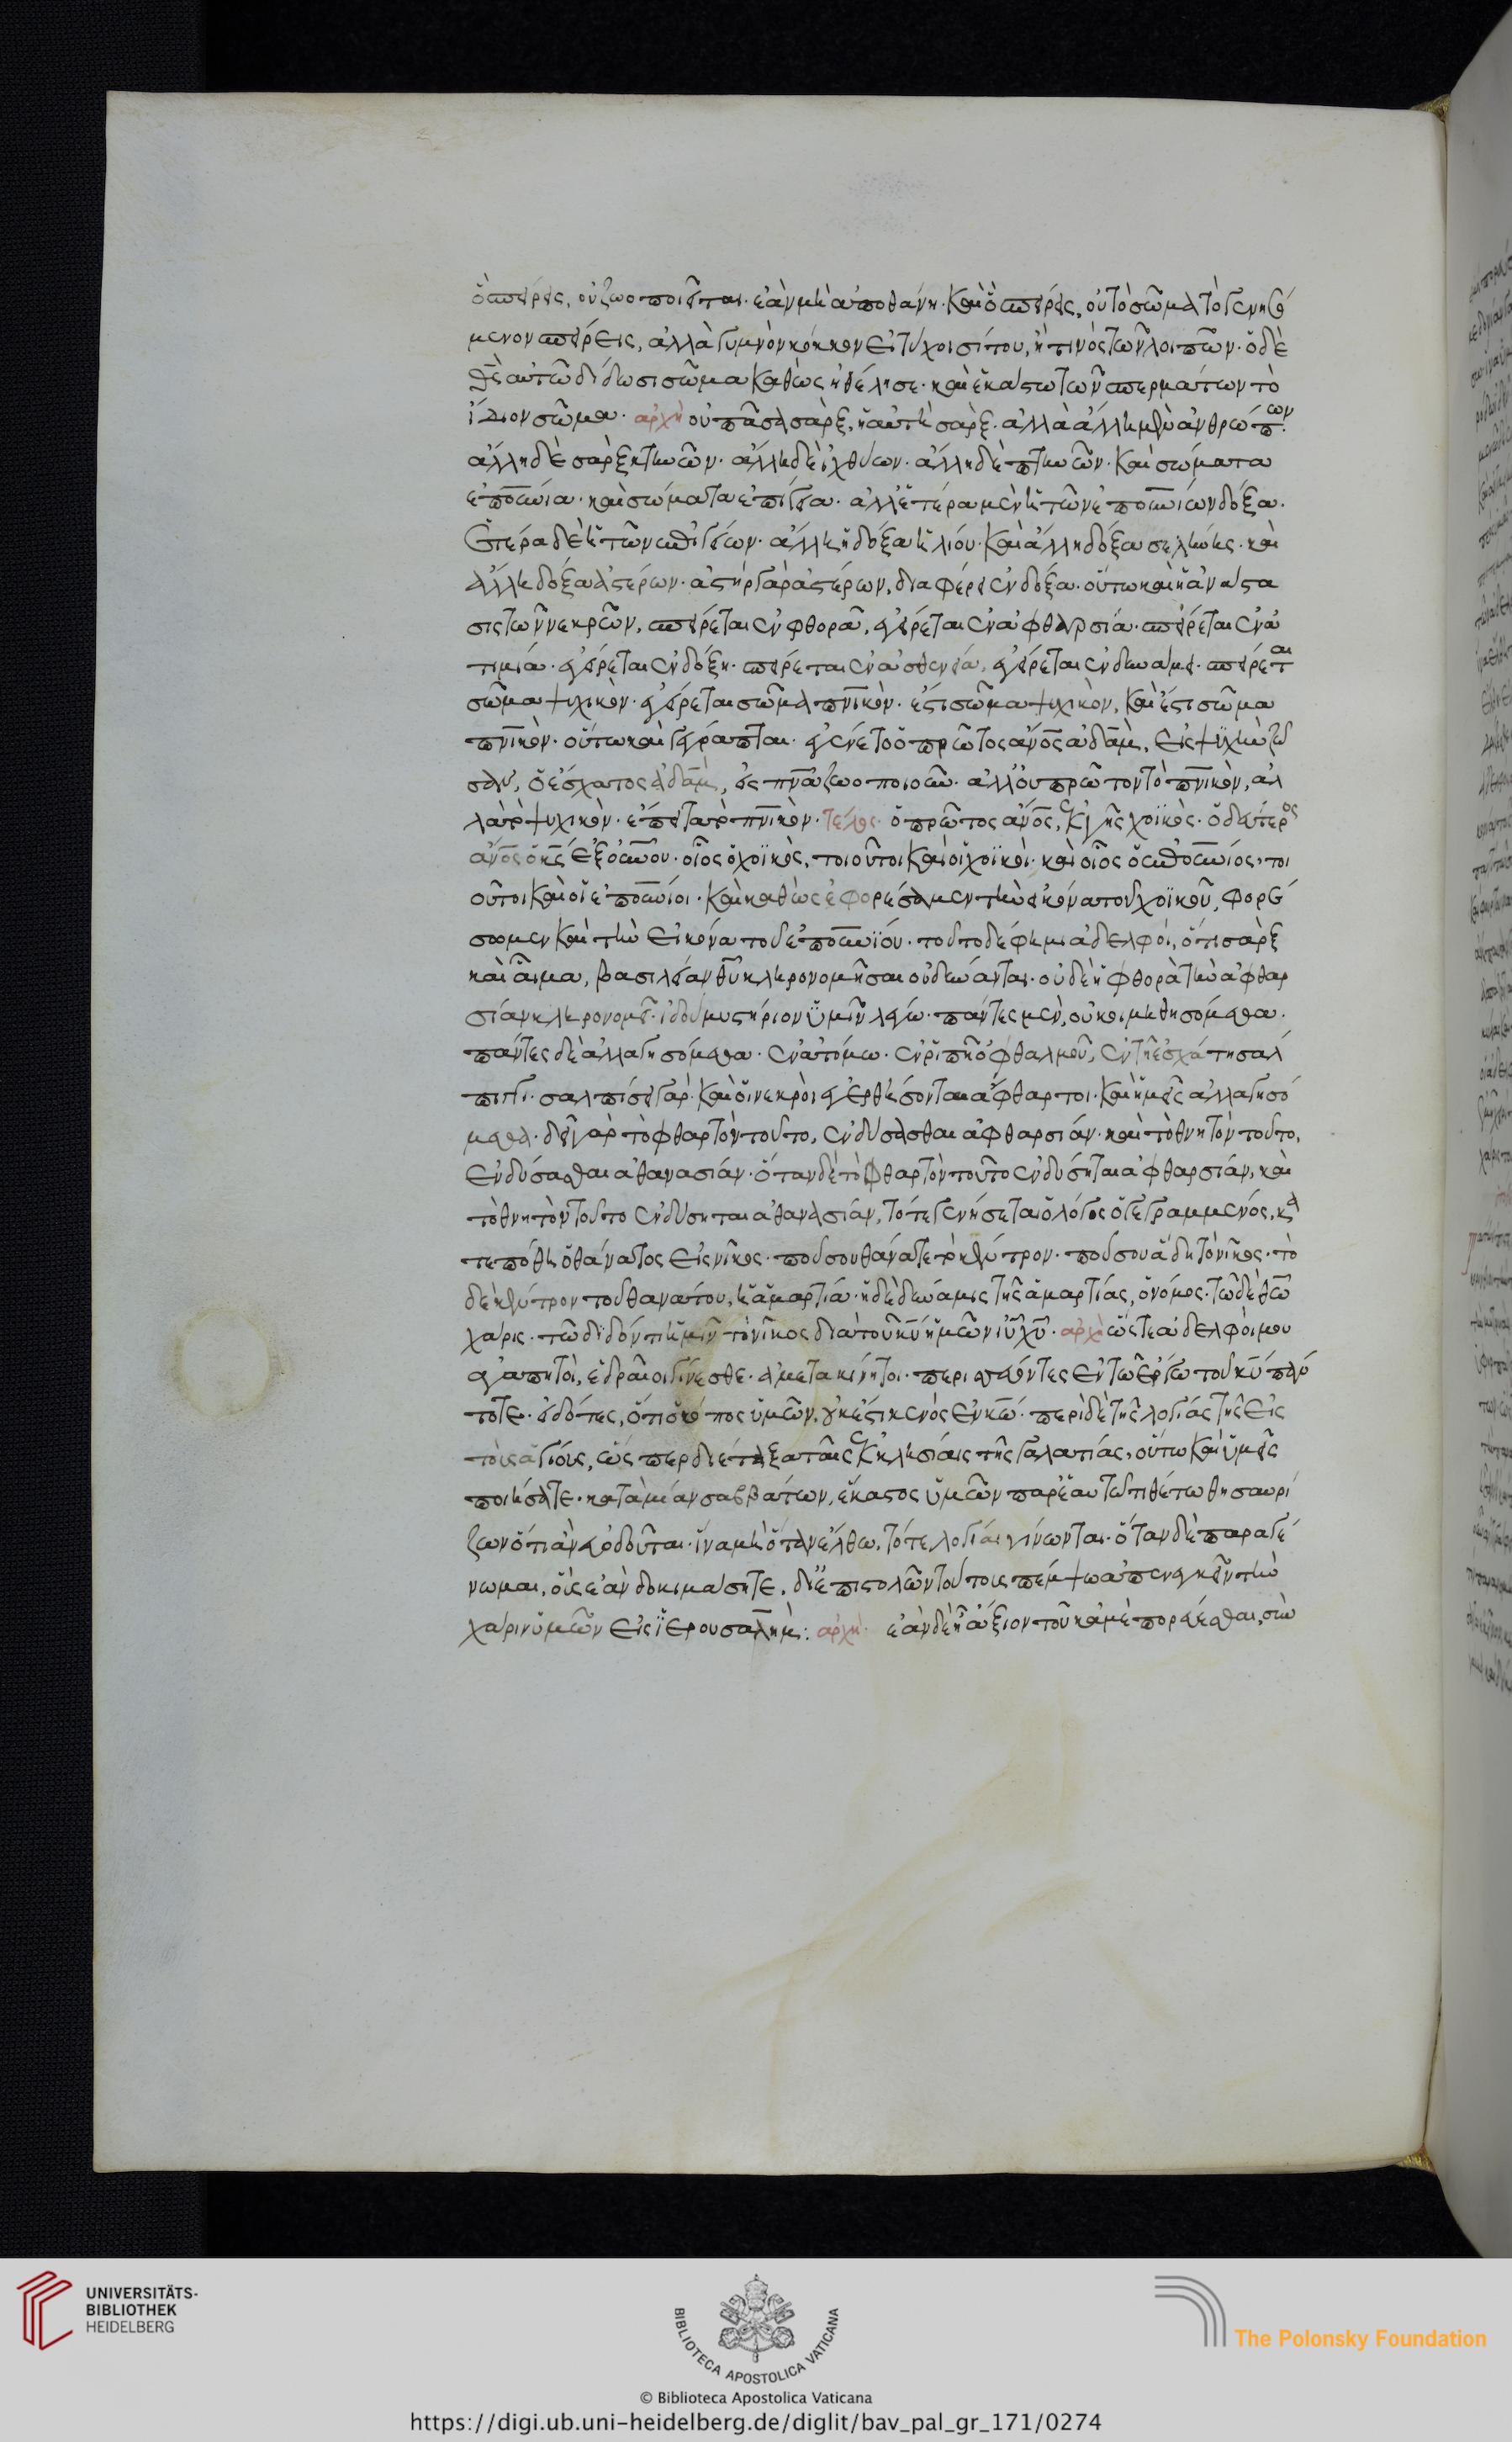 ὃ σπείρεις, οὐ ζωοποιεῖται· ἐὰν μὴ ἀποθάνη· καὶ ὃ σπείρεις, οὐ τὸ σῶμα τὸ γενησό
μενον σπείρεις, ἀλλὰ γυμνὸν κόκκον εἰ τύχοι σίτου, ἤ τινος τῶν λοιπῶν· ὁ δὲ
θς αὐτῶ δίδωσι σῶμα καθὼς ἠθέλησε· καὶ ἑκάστω τῶν σπερμάτων τὸ
ἴδιον σῶμα· ἀρχὴ οὐ πᾶσα σὰρξ, ἡ αὐτὴ σὰρξ· ἀλλὰ ἄλλη μὲν ἀνθρώπων
ἄλλη δὲ σὰρξ κτηνῶν· ἄλλη δὲ ἰχθύων· ἄλλη δὲ πτηνῶν· καὶ σώματα
ἐπουνία· καὶ σώματα ἐπίγεια· ἀλλ' ἑτέρα μὲν ἡ τῶν ἐπουνίων δόξα·
ἑτέρα δὲ ἡ τῶν ἐπιγείων· ἄλλη ἡ δόξα ἡλίου· καὶ ἄλλη δόξα σελήνης· καὶ
ἄλλη δόξα ἀστέρων· ἀστὴρ γὰρ ἀστέρων, διαφέρει ἐν δόξα· οὕτω καὶ ἡ ἀνάστα
σις τῶν νεκρῶν, σπείρεται ἐν φθορᾶ, ἐγείρεται ἐν ἀφθαρσία· σπείρεται ἐν ἀ
τιμία· ἐγείρεται ἐν δόξη· σπείρεται ἐν ἀσθενεία, ἐγείρεται ἐν δυνάμει· σπείρεται
σῶμα ψυχικὸν· ἐγείρεται σῶμα πνικὸν· ἔστι σῶμα ψυχικὸν, καὶ ἔστι σῶμα
πνικὸν· οὕτω καὶ γέγραπται· ἐγένετο ὁ πρῶτος ἄνος ἀδὰμ, εἰς ψυχὴν ζῶ
σαν, ὁ ἔσχατος ἀδὰμ, εἰς πνα ζωοποιοῦν· ἀλλ' οὐ πρῶτον τὸ πνικὸν, ἀλ
λὰ τὸ ψυχικὸν· ἔπειτα τὸ πνικὸν· τέλος· ὁ πρῶτος ἄνος, ἐκ γῆς χοϊκὸς· ὁ δεύτερος
ἄνος ὁ κς ἐξ οὐνου· οἷος ὁ χοϊκὸς, τοιοῦτοι καὶ οἱ χοϊκοὶ· καὶ οἷος ὁ ἐπουνίος, τοι
οῦτοι καὶ οἱ ἐπουνίοι· καὶ καθὼς ἐφορέσαμεν τὴν εἰκόνα τοῦ χοϊκοῦ, φορέ
σομεν καὶ τὴν εἰκόνα τοῦ ἐπουνίου· τοῦτο δέ φημι ἀδελφοὶ, ὅτι σὰρξ
καὶ αἷμα, βασιλείαν θυ κληρονομῆσαι οὐ δύνανται· οὐδὲ ἡ φθορὰ τὴν ἀφθαρ
σίαν κληρονομεῖ· ἰδοὺ μυστήριον ὑμῖν λέγω· πάντες μὲν, οὐ κοιμηθησόμεθα·
πάντες δὲ ἀλλαγησόμεθα· ἐν ἀτόμω· ἐν ῥιπῆ ὀφθαλμοῦ, ἐν τῆ ἐσχάτη σάλ
πιγγι· σαλπίσει γάρ· καὶ οἱ νεκροὶ ἐγερθήσονται ἄφθαρτοι· καὶ ἡμεῖς ἀλλαγησό
μεθα· δεῖ γὰρ τὸ φθαρτὸν τοῦτο, ἐνδύσασθαι ἀφθαρσίαν· καὶ τὸ θνητὸν τοῦτο,
ἐνδύσασθαι ἀθανασίαν· ὅταν δὲ τὸ φθαρτὸν τοῦτο ἐνδύσηται ἀφθαρσίαν, καὶ
τὸ θνητὸν τοῦτο ἐνδύσηται ἀθανασίαν, τότε γενήσεται ὁ λόγος ὁ γεγραμμένος, κα
τεπόθη ὁ θάνατος εἰς νῖκος· ποῦ σου θάνατε τὸ κέντρον· ποῦ σου ἅδη τὸ νῖκος· τὸ
δὲ κέντρον τοῦ θανάτου, ἡ ἁμαρτία· ἡ δὲ δύναμις τῆς ἁμαρτίας, ὁ νόμος· τῶ δὲ θω
χάρις· τῶ διδόντι ἡμῖν τὸ νῖκος διὰ τοῦ κυ ἡμῶν ιυ χυ· ἀρχὴ ὥστε ἀδελφοὶ μου
ἀγαπητοὶ, ἑδραῖοι γίνεσθε· ἀμετακίνητοι· περισσεύοντες ἐν τῶ ἔργω τοῦ κυ πάν
τοτε· εἰδότες, ὅτι ὁ κόπος ὑμῶν, οὐκ ἔστι κενὸς ἐν κω· περὶ δὲ τῆς λογίας τῆς εἰς
τοὺς ἁγίους, ὥσπερ διέταξα ταῖς ἐκκλησίαις τῆς γαλατίας, οὕτω καὶ ὑμεῖς
ποιήσατε· κατὰ μίαν σαββάτων, ἕκαστος ὑμῶν παρ' ἑαυτῶ τιθέτω θησαυρί
ζων ὅτι ἂν εὐοδοῦται· ἵνα μὴ ὅταν ἔλθω, τότε λογίαι γίνωνται· ὅταν δὲ παραγέ
νωμαι, οὓς ἐὰν δοκιμάσητε, δι' ἐπιστολῶν τούτους πέμψω ἀπενεγκεῖν τὴν
χάριν ὑμῶν εἰς ἱερουσαλήμ: ἀρχὴ· ἐὰν δὲ ἦ ἄξιον τοῦ κἀμὲ πορεύεσθαι, σὺν
UNIVERSITÄTS-
BIBLIOTHEK
HEIDELBERG
BIBLIOTECA APOSTOLICA VATICANA
The Polonsky Foundation
© Biblioteca Apostolica Vaticana
https://digi.ub.uni-heidelberg.de/diglit/bav_pal_gr_171/0274